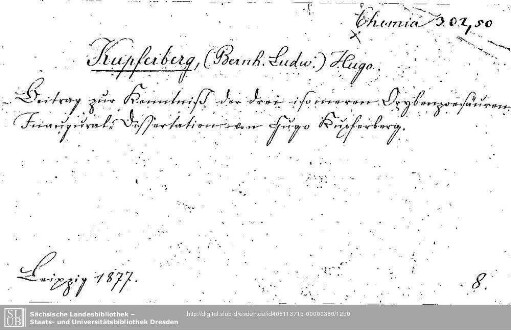 Chemia 302,50
Kupferberg, (Bernh. Ludw.) Hugo.
Beitrag zur Kenntniß der drei isomeren Oxybenzoesäuren.
Inaugural-Dissertation von Hugo Kupferberg.
Leipzig 1877. 8.
SLUB
Sächsische Landesbibliothek –
Staats- und Universitätsbibliothek Dresden